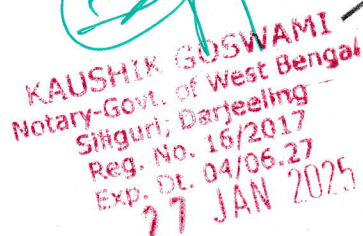 KAUSHIK GOSWAMI
Notary-Govt. of West Bengal
Siliguri, Darjeeling
Reg. No. 16/2017
Exp. Dt. 04/06.27
27 JAN 2025